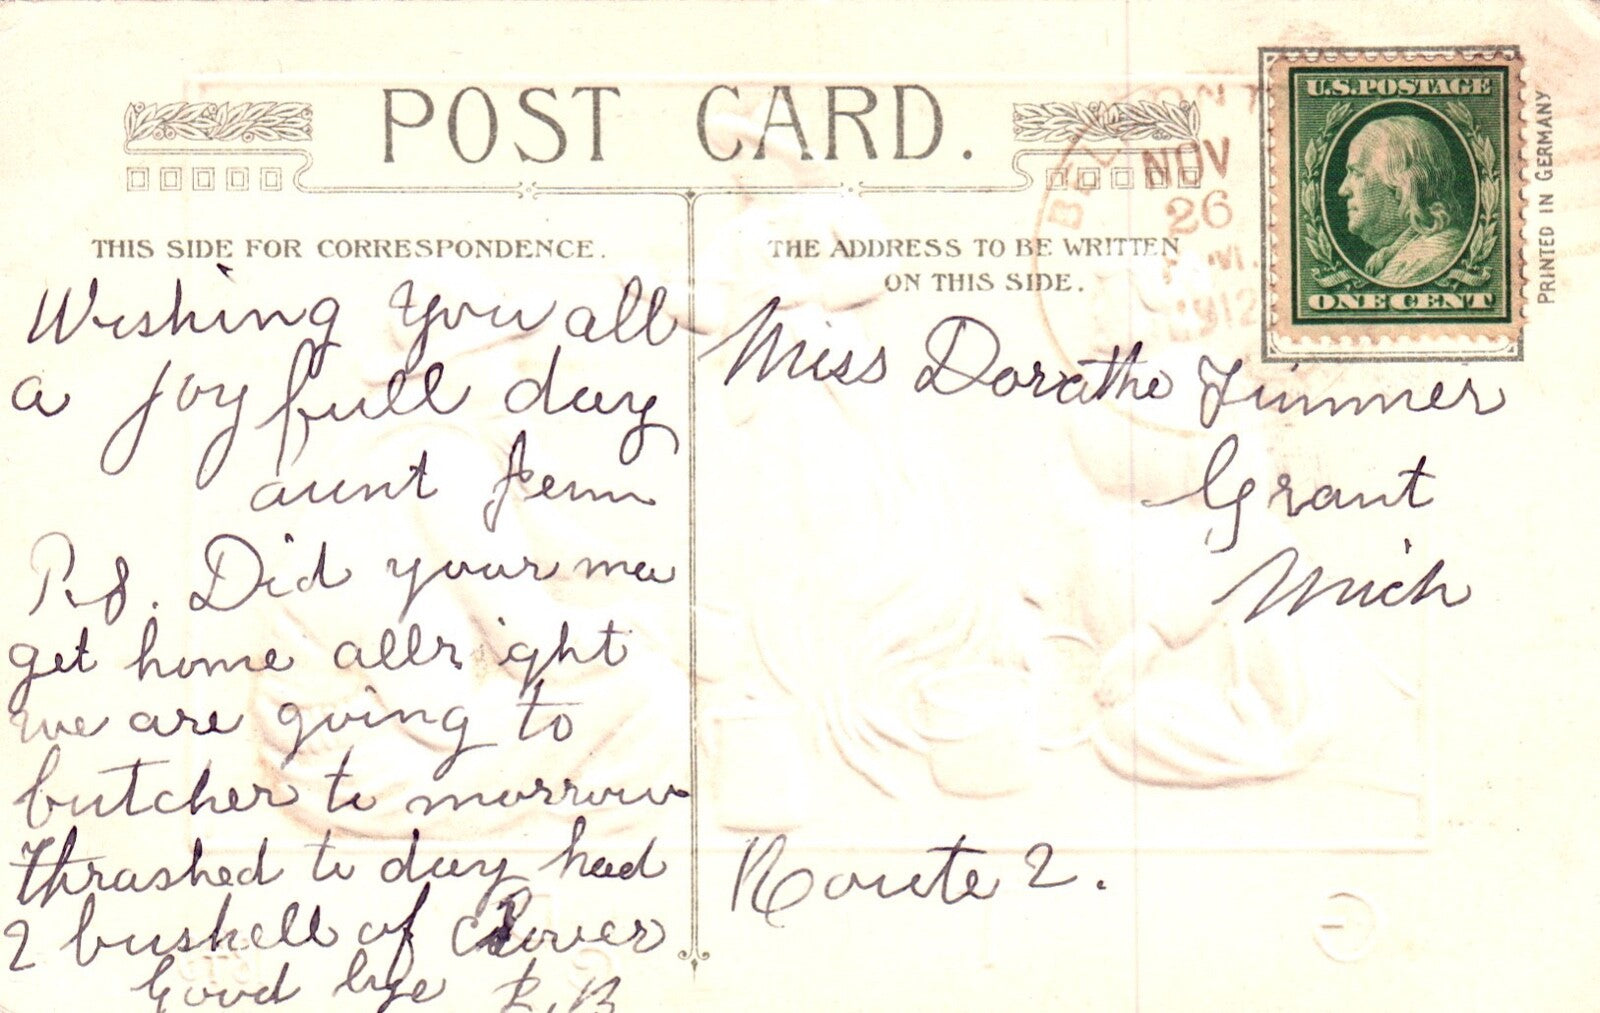 POST CARD.
THIS SIDE FOR CORRESPONDENCE.
Wishing you all
a joy full day
aunt Jenn
P.S. Did your ma
get home allright
we are going to
butcher to morrow
Thrashed to day had
2 bushell of clover
Good bye
THE ADDRESS TO BE WRITTEN
ON THIS SIDE.
Miss Dorathe
Grant
Mich
Route 2.
NOV
26
1912
U.S. POSTAGE
ONE CENT
PRINTED IN GERMANY